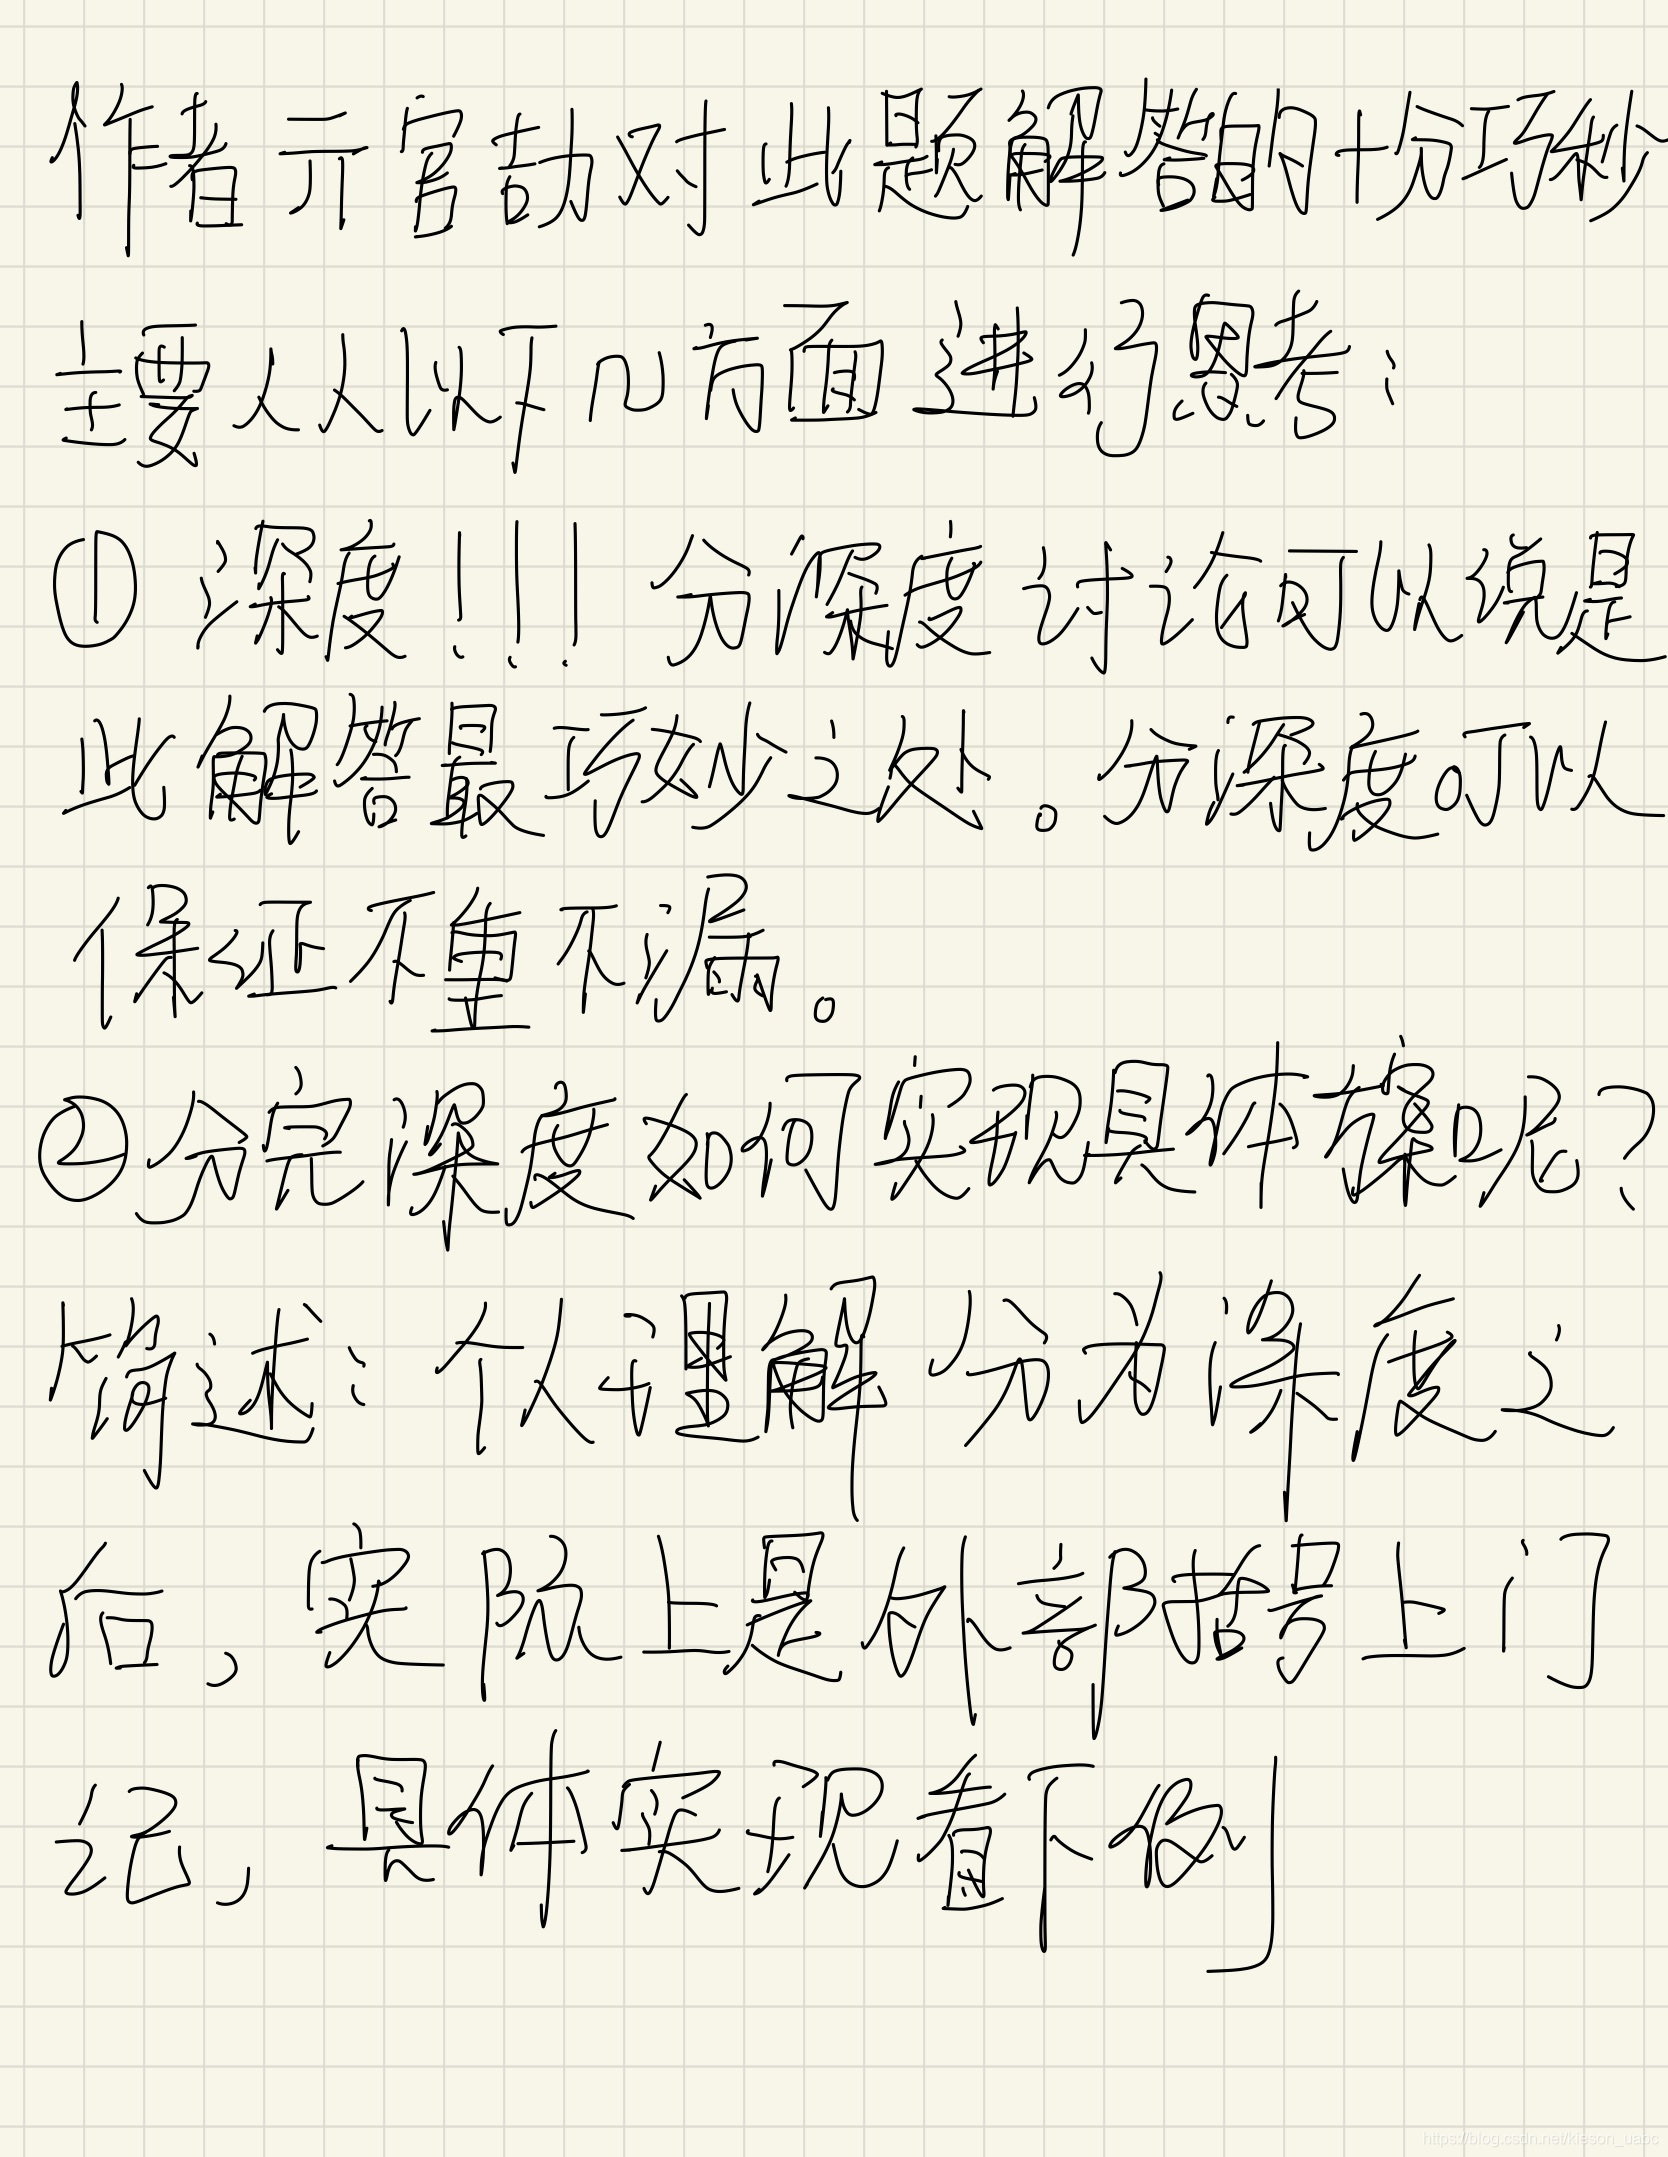 作者元官劼对此题解答的十分巧秒
主要人从以下几方面进行思考：
① 深度！！！ 分深度讨论可以说是
此解答最巧妙之处。分深度可以
保证不重不漏。
②分完深度如何实现具体操呢？
简述：个人理解分为深度之
后，实际上是外部括号上门
记，具体实现看下例
https://blog.csdn.net/kieson_uabc